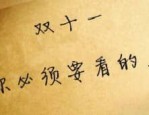 双十一
必须要看的